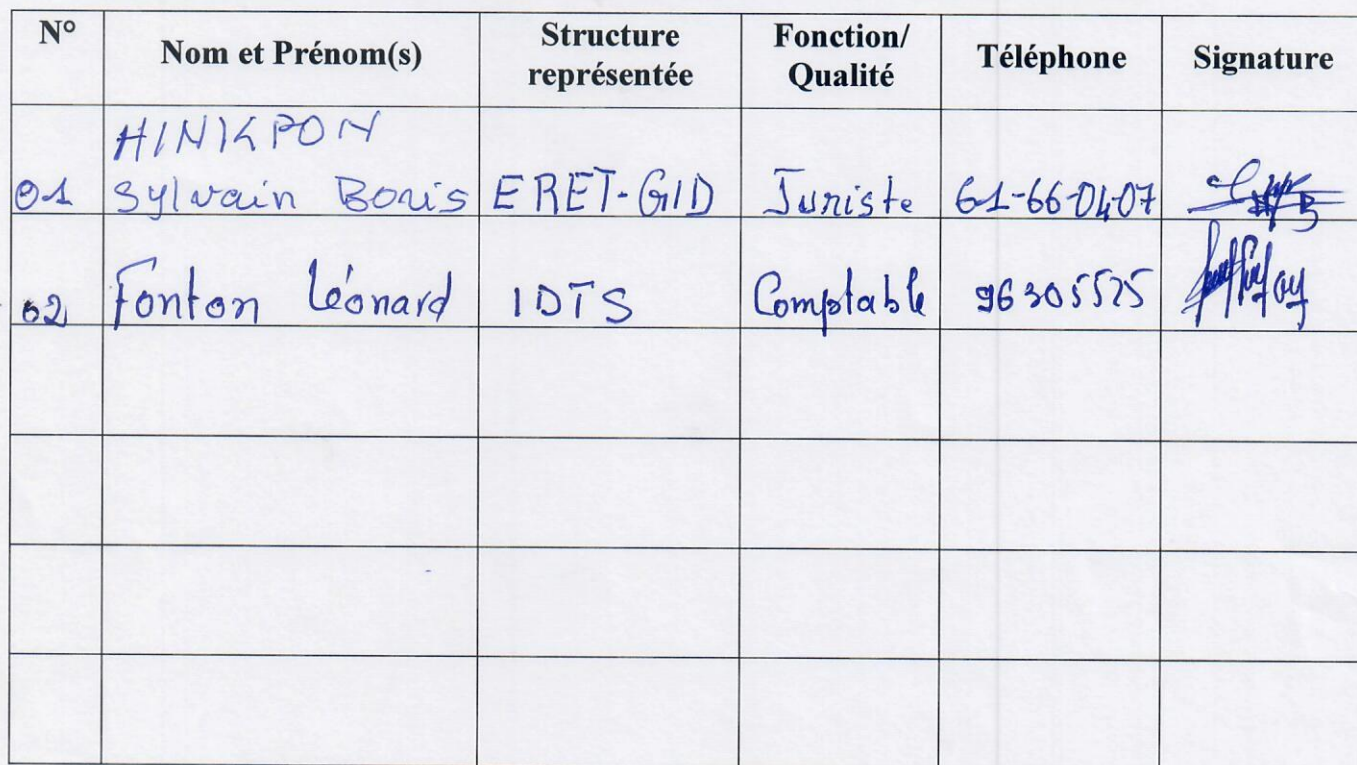 N° Nom et Prénom(s) Structure représentée Fonction/ Qualité Téléphone Signature
HINIKPON
01 Sylvain Boris ERET-GID Juriste 61-66-04-07
02 Fonton Léonard IDTS Comptable 96305525